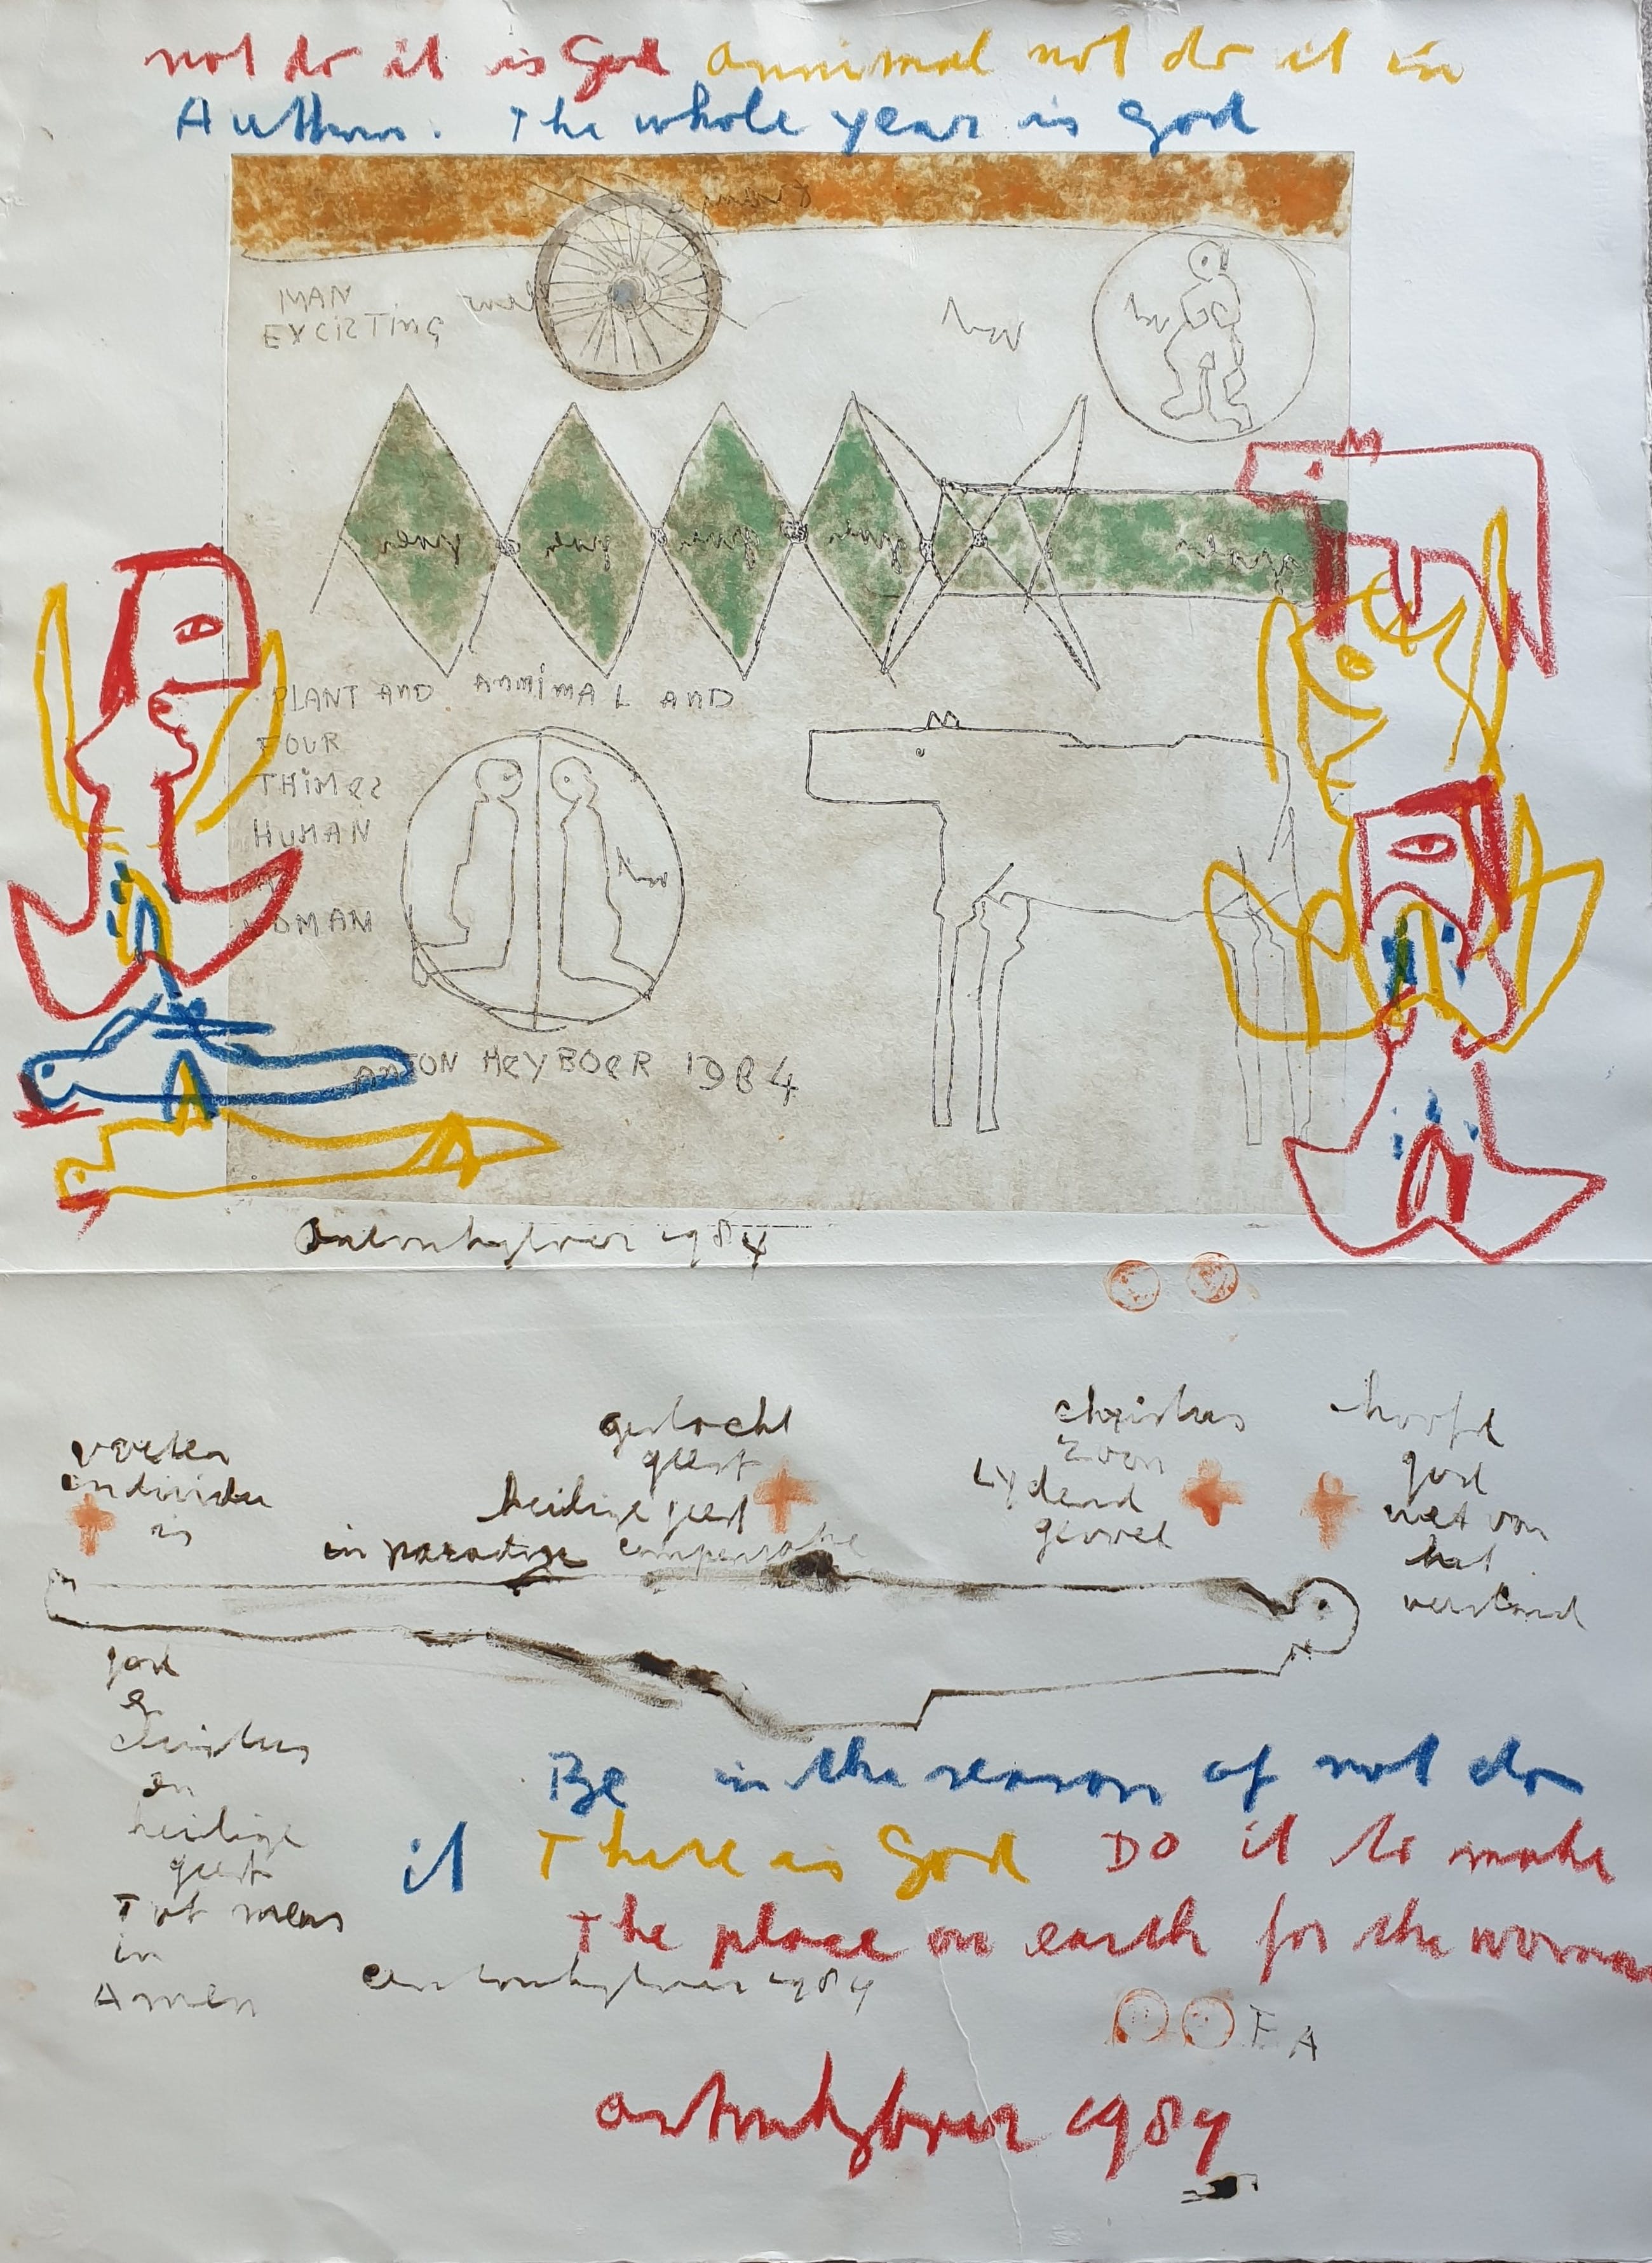 not do it is God annimal not do it in
Authum. The whole year is God
MAN
EXCISTING
green green green green green
PLANT AND ANMIMAL AND
FOUR
THIMES
HUMAN
WOMAN
ANTON HEYBOER 1984
antonheyboer 1984
geslacht
geest
heilige geest
in paradize compensatie
christus
zoon
Lydend
gevoel
hoofd
god
wet van
het
verstand
voeten
individu
is
god
en
Christus
en
heilige
geest
Tot mens
in
Amen
Be in the reason of not do
it There is God Do it to make
The place on earth for the woman
antonheyboer 1984
E A
antonheyboer 1984